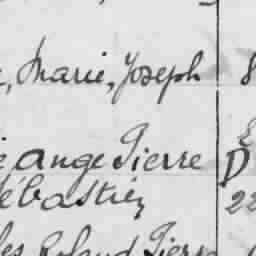 , Marie, Joseph 8
ange Pierre D
ébastien 22
les Roland Pierre